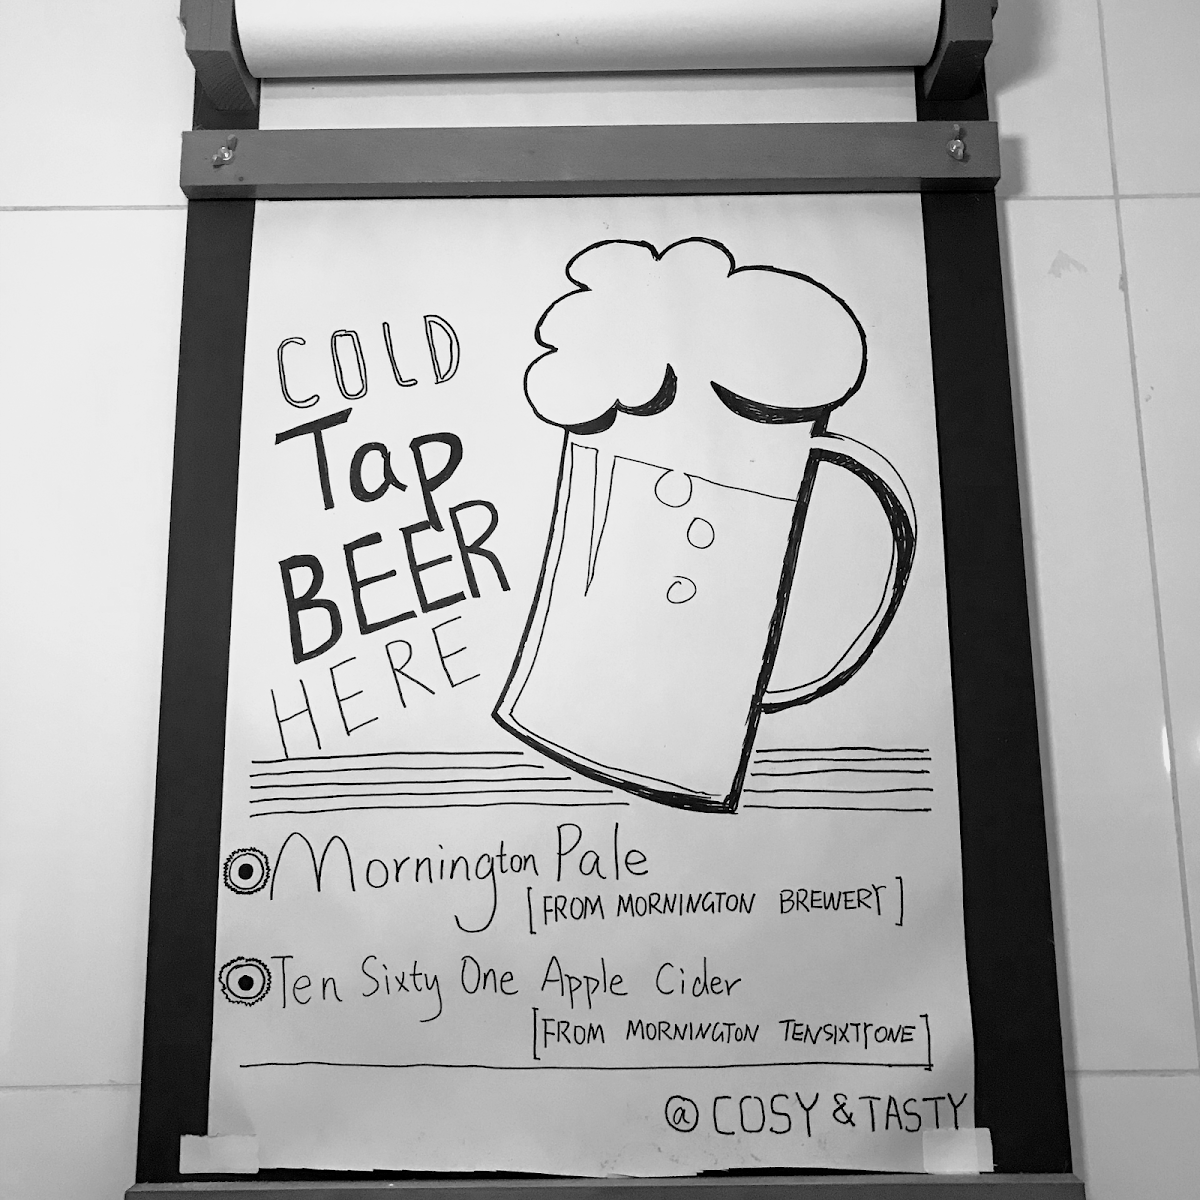 COLD
Tap
BEER
HERE
Mornington Pale
[FROM MORNINGTON BREWERY]
Ten Sixty One Apple Cider
[FROM MORNINGTON TENSIXTYONE]
@ COSY & TASTY